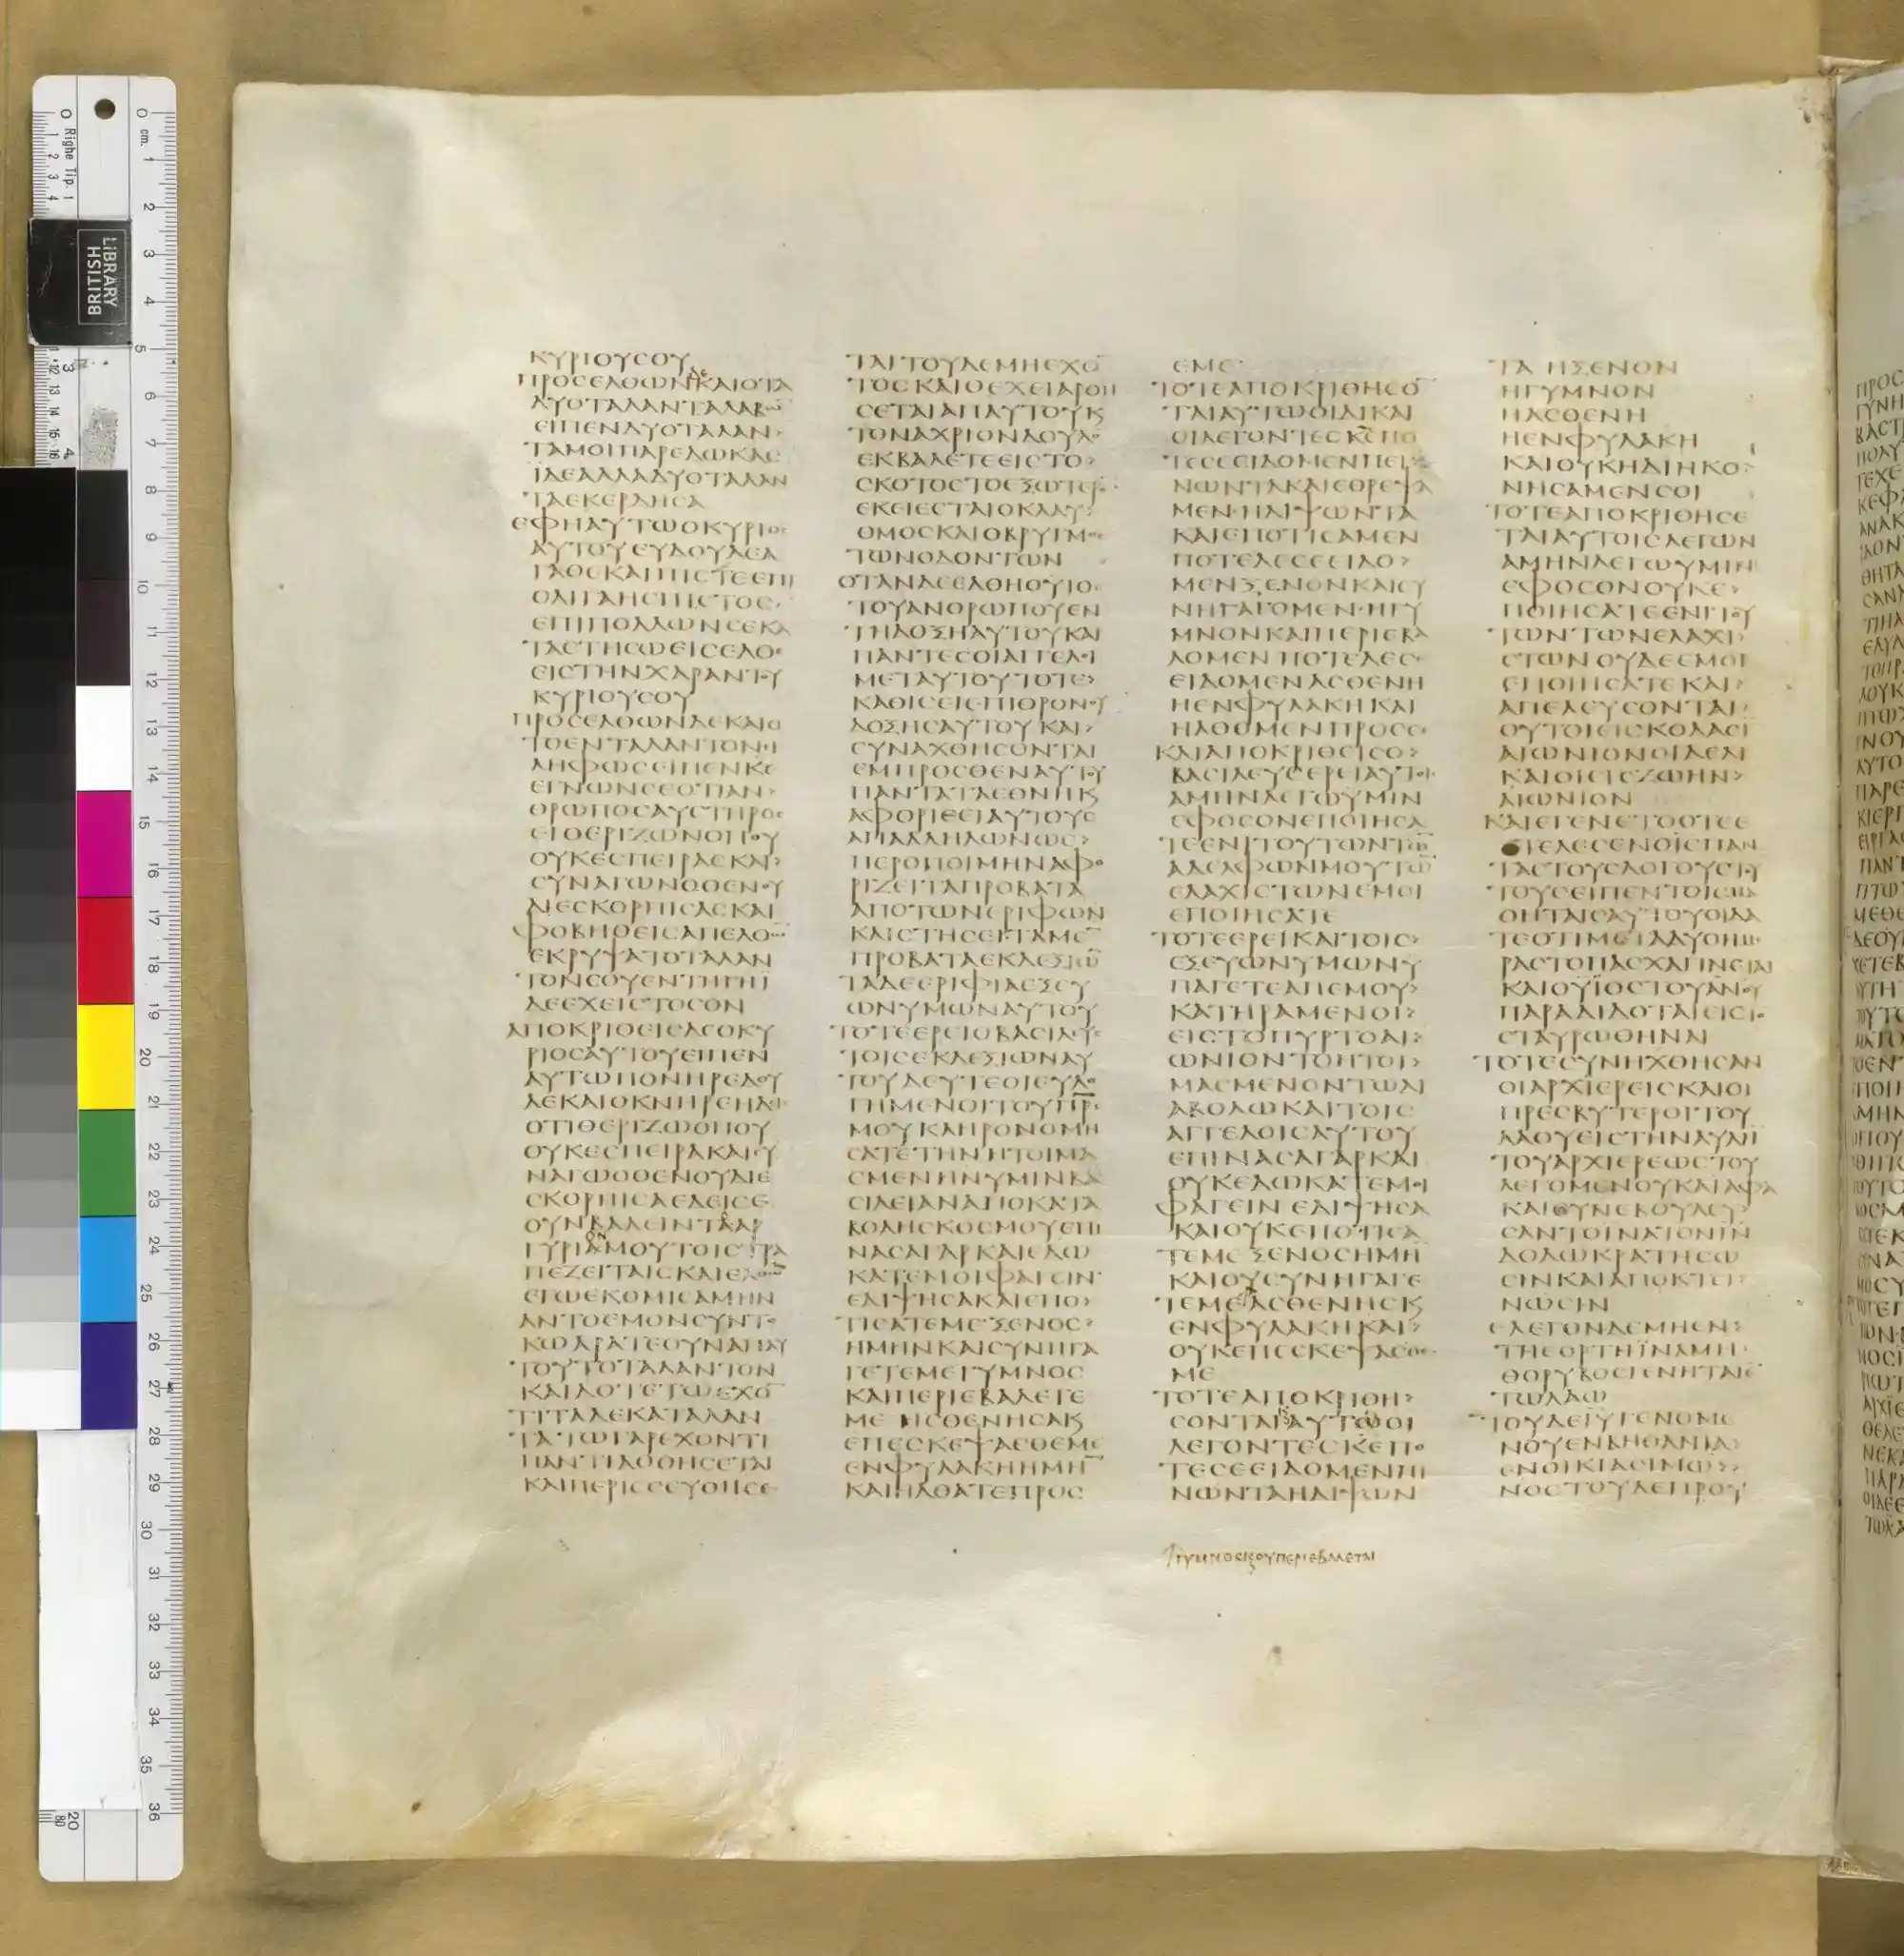 ΚΥΡΙΟΥϹΟΥ
ΠΡΟϹΕΛΘΩΝΔΕΚΑΙΟΤΑ
ΔΥΟΤΑΛΑΝΤΑΛΑΒΩ
ΕΙΠΕΝΔΥΟΤΑΛΑΝ
ΤΑΜΟΙΠΑΡΕΔΩΚΑϹ
ΪΔΕΑΛΛΑΔΥΟΤΑΛΑΝ
ΤΑΕΚΕΡΔΗϹΑ
ΕΦΗΑΥΤΩΟΚΥΡΙΟϹ
ΑΥΤΟΥΕΥΔΟΥΛΕΑ
ΓΑΘΕΚΑΙΠΙϹΤΕΕΠΙ
ΟΛΙΓΑΗϹΠΙϹΤΟϹ
ΕΠΙΠΟΛΛΩΝϹΕΚΑ
ΤΑϹΤΗϹΩΕΙϹΕΛΘΕ
ΕΙϹΤΗΝΧΑΡΑΝΤΟΥ
ΚΥΡΙΟΥϹΟΥ
ΠΡΟϹΕΛΘΩΝΔΕΚΑΙΟ
ΤΟΕΝΤΑΛΑΝΤΟΝΕΙ
ΛΗΦΩϹΕΙΠΕΝΚΕ
ΕΓΝΩΝϹΕΟΤΙΑΝ
ΘΡΩΠΟϹΑΥϹΤΗΡΟϹ
ΕΙΘΕΡΙΖΩΝΟΠΟΥ
ΟΥΚΕϹΠΕΙΡΑϹΚΑΙ
ϹΥΝΑΓΩΝΟΘΕΝΟΥ
ΔΙΕϹΚΟΡΠΙϹΑϹΚΑΙ
ΦΟΒΗΘΕΙϹΑΠΕΛΘΩΝ
ΕΚΡΥΨΑΤΟΤΑΛΑΝ
ΤΟΝϹΟΥΕΝΤΗΓΗΪ
ΔΕΕΧΕΙϹΤΟϹΟΝ
ΑΠΟΚΡΙΘΕΙϹΔΕΟΚΥ
ΡΙΟϹΑΥΤΟΥΕΙΠΕΝ
ΑΥΤΩΠΟΝΗΡΕΔΟΥ
ΛΕΚΑΙΟΚΝΗΡΕΗΔΙϹ
ΟΤΙΘΕΡΙΖΩΟΠΟΥ
ΟΥΚΕϹΠΕΙΡΑΚΑΙϹΥ
ΝΑΓΩΟΘΕΝΟΥΔΙΕ
ϹΚΟΡΠΙϹΑΕΔΕΙϹΕ
ΟΥΝΒΑΛΕΙΝΤΑΑΡ
ΓΥΡΙΑΜΟΥΤΟΙϹΤΡΑ
ΠΕΖΕΙΤΑΙϹΚΑΙΕΛΘΩΝ
ΕΓΩΕΚΟΜΙϹΑΜΗΝ
ΑΝΤΟΕΜΟΝϹΥΝΤΟ
ΚΩΑΡΑΤΕΟΥΝΑΠΑΥ
ΤΟΥΤΟΤΑΛΑΝΤΟΝ
ΚΑΙΔΟΤΕΤΩΕΧΟ̅
ΤΙΤΑΔΕΚΑΤΑΛΑΝ
ΤΑΤΩΓΑΡΕΧΟΝΤΙ
ΠΑΝΤΙΔΟΘΗϹΕΤΑΙ
ΚΑΙΠΕΡΙϹϹΕΥΘΗϹΕ
ΤΑΙΤΟΥΔΕΜΗΕΧΟ̅
ΤΟϹΚΑΙΟΕΧΕΙΑΡΘΗ
ϹΕΤΑΙΑΠΑΥΤΟΥΚ
ΤΟΝΑΧΡΙΟΝΔΟΥΛΟ
ΕΚΒΑΛΕΤΕΕΙϹΤΟ
ϹΚΟΤΟϹΤΟΕΞΩΤΕΡΟ
ΕΚΕΙΕϹΤΑΙΟΚΛΑΥ
ΘΜΟϹΚΑΙΟΒΡΥΓΜΟϹ
ΤΩΝΟΔΟΝΤΩΝ
ΟΤΑΝΔΕΕΛΘΗΟΥΙΟϹ
ΤΟΥΑΝΘΡΩΠΟΥΕΝ
ΤΗΔΟΞΗΑΥΤΟΥΚΑΙ
ΠΑΝΤΕϹΟΙΑΓΓΕΛΟΙ
ΜΕΤΑΥΤΟΥΤΟΤΕ
ΚΑΘΙϹΕΙΕΠΙΘΡΟΝΟΥ
ΔΟΞΗϹΑΥΤΟΥΚΑΙ
ϹΥΝΑΧΘΗϹΟΝΤΑΙ
ΕΜΠΡΟϹΘΕΝΑΥΤΟΥ
ΠΑΝΤΑΤΑΕΘΝΗΚ
ΑΦΟΡΙϹΕΙΑΥΤΟΥϹ
ΑΠΑΛΛΗΛΩΝΩϹ
ΠΕΡΟΠΟΙΜΗΝΑΦΟ
ΡΙΖΕΙΤΑΠΡΟΒΑΤΑ
ΑΠΟΤΩΝΕΡΙΦΩΝ
ΚΑΙϹΤΗϹΕΙΤΑΜΕ̅
ΠΡΟΒΑΤΑΕΚΔΕΞΙΩ̅
ΤΑΔΕΕΡΙΦΙΑΕΞΕΥ
ΩΝΥΜΩΝΑΥΤΟΥ
ΤΟΤΕΕΡΕΙΟΒΑϹΙΛΕΥϹ
ΤΟΙϹΕΚΔΕΞΙΩΝΑΥ
ΤΟΥΔΕΥΤΕΟΙΕΥΛΟ
ΓΗΜΕΝΟΙΤΟΥΠΡϹ
ΜΟΥΚΛΗΡΟΝΟΜΗ
ϹΑΤΕΤΗΝΗΤΟΙΜΑ
ϹΜΕΝΗΝΥΜΙΝΒΑ
ϹΙΛΕΙΑΝΑΠΟΚΑΤΑ
ΒΟΛΗϹΚΟϹΜΟΥΕΠΙ
ΝΑϹΑΓΑΡΚΑΙΕΔΩ
ΚΑΤΕΜΟΙΦΑΓΕΙΝ
ΕΔΙΨΗϹΑΚΑΙΕΠΟ
ΤΙϹΑΤΕΜΕΞΕΝΟϹ
ΗΜΗΝΚΑΙϹΥΝΗΓΑ
ΓΕΤΕΜΕΓΥΜΝΟϹ
ΚΑΙΠΕΡΙΕΒΑΛΕΤΕ
ΜΕΗϹΘΕΝΗϹΑΚ
ΕΠΕϹΚΕΨΑϹΘΕΜΕ
ΕΝΦΥΛΑΚΗΗΜΗ̅
ΚΑΙΗΛΘΑΤΕΠΡΟϹ
ΕΜΕ
ΤΟΤΕΑΠΟΚΡΙΘΗϹΟ̅
ΤΑΙΑΥΤΩΟΙΔΙΚΑΙ
ΟΙΛΕΓΟΝΤΕϹΚΕΠΟ
ΤΕϹΕΕΙΔΟΜΕΝΠΕΙ
ΝΩΝΤΑΚΑΙΕΘΡΕΨΑ
ΜΕΝΗΔΙΨΩΝΤΑ
ΚΑΙΕΠΟΤΙϹΑΜΕΝ
ΠΟΤΕΔΕϹΕΕΙΔΟ
ΜΕΝΞΕΝΟΝΚΑΙϹΥ
ΝΗΓΑΓΟΜΕΝΗΓΥ
ΜΝΟΝΚΑΙΠΕΡΙΕΒΑ
ΛΟΜΕΝΠΟΤΕΔΕϹΕ
ΕΙΔΟΜΕΝΑϹΘΕΝΗ
ΗΕΝΦΥΛΑΚΗΚΑΙ
ΗΛΘΟΜΕΝΠΡΟϹϹΕ
ΚΑΙΑΠΟΚΡΙΘΕΙϹΟ
ΒΑϹΙΛΕΥϹΕΡΕΙΑΥΤΟΙϹ
ΑΜΗΝΛΕΓΩΫΜΙΝ
ΕΦΟϹΟΝΕΠΟΙΗϹΑ
ΤΕΕΝΙΤΟΥΤΩΝΤΩ̅
ΑΔΕΛΦΩΝΜΟΥΤΩ̅
ΕΛΑΧΙϹΤΩΝΕΜΟΙ
ΕΠΟΙΗϹΑΤΕ
ΤΟΤΕΕΡΕΙΚΑΙΤΟΙϹ
ΕΞΕΥΩΝΥΜΩΝΥ
ΠΑΓΕΤΕΑΠΕΜΟΥ
ΚΑΤΗΡΑΜΕΝΟΙ
ΕΙϹΤΟΠΥΡΤΟΑΙ
ΩΝΙΟΝΤΟΗΤΟΙ
ΜΑϹΜΕΝΟΝΤΩΔΙ
ΑΒΟΛΩΚΑΙΤΟΙϹ
ΑΓΓΕΛΟΙϹΑΥΤΟΥ
ΕΠΙΝΑϹΑΓΑΡΚΑΙ
ΟΥΚΕΔΩΚΑΤΕΜΟΙ
ΦΑΓΕΙΝΕΔΙΨΗϹΑ
ΚΑΙΟΥΚΕΠΟΤΙϹΑ
ΤΕΜΕΞΕΝΟϹΗΜΗ
ΚΑΙΟΥϹΥΝΗΓΑΓΕ
ΤΕΜΕΑϹΘΕΝΗϹΚ
ΕΝΦΥΛΑΚΗΚΑΙ
ΟΥΚΕΠΕϹΚΕΨΑϹΘΕ
ΜΕ
ΤΟΤΕΑΠΟΚΡΙΘΗ
ϹΟΝΤΑΙΚΑΥΤΟΙΟΙ
ΛΕΓΟΝΤΕϹΚΕΠΟ
ΤΕϹΕΕΙΔΟΜΕΝΠΙ
ΝΩΝΤΑΗΔΙΨΩΝ
ΓΥΜΝΟϹΚΟΥΠΕΡΙΕΒΑΛΕΤΑΙ
ΤΑΗΞΕΝΟΝ
ΗΓΥΜΝΟΝ
ΗΑϹΘΕΝΗ
ΗΕΝΦΥΛΑΚΗ
ΚΑΙΟΥΚΗΔΙΗΚΟ
ΝΗϹΑΜΕΝϹΟΙ
ΤΟΤΕΑΠΟΚΡΙΘΗϹΕ
ΤΑΙΑΥΤΟΙϹΛΕΓΩΝ
ΑΜΗΝΛΕΓΩΥΜΙΝ
ΕΦΟϹΟΝΟΥΚΕ
ΠΟΙΗϹΑΤΕΕΝΙΤΟΥ
ΤΩΝΤΩΝΕΛΑΧΙ
ϹΤΩΝΟΥΔΕΕΜΟΙ
ΕΠΟΙΗϹΑΤΕΚΑΙ
ΑΠΕΛΕΥϹΟΝΤΑΙ
ΟΥΤΟΙΕΙϹΚΟΛΑϹΙ
ΑΙΩΝΙΟΝΟΙΔΕΔΙ
ΚΑΙΟΙΕΙϹΖΩΗΝ
ΑΙΩΝΙΟΝ
ΚΑΙΕΓΕΝΕΤΟΟΤΕΕ
ΤΕΛΕϹΕΝΟΙϹΠΑΝ
ΤΑϹΤΟΥϹΛΟΓΟΥϹΤΟΥ
ΤΟΥϹΕΙΠΕΝΤΟΙϹΜΑ
ΘΗΤΑΙϹΑΥΤΟΥΟΙΔΑ
ΤΕΟΤΙΜΕΤΑΔΥΟΗΜΕ
ΡΑϹΤΟΠΑϹΧΑΓΙΝΕΤΑΙ
ΚΑΙΟΥΪΟϹΤΟΥΑΝΟΥ
ΠΑΡΑΔΙΔΟΤΑΙΕΙϹΤΟ
ϹΤΑΥΡΩΘΗΝΑΙ
ΤΟΤΕϹΥΝΗΧΘΗϹΑΝ
ΟΙΑΡΧΙΕΡΕΙϹΚΑΙΟΙ
ΠΡΕϹΒΥΤΕΡΟΙΤΟΥ
ΛΑΟΥΕΙϹΤΗΝΑΥΛΗ
ΤΟΥΑΡΧΙΕΡΕΩϹΤΟΥ
ΛΕΓΟΜΕΝΟΥΚΑΙΑΦΑ
ΚΑΙϹΥΝΕΒΟΥΛΕΥ
ϹΑΝΤΟΙΝΑΤΟΝΙΝ
ΔΟΛΩΚΡΑΤΗϹΩ
ϹΙΝΚΑΙΑΠΟΚΤΕΙ
ΝΩϹΙΝ
ΕΛΕΓΟΝΔΕΜΗΕΝ
ΤΗΕΟΡΤΗΪΝΑΜΗ
ΘΟΡΥΒΟϹΓΕΝΗΤΑΙΕ̅
ΤΩΛΑΩ
ΤΟΥΔΕΙΥΓΕΝΟΜΕ
ΝΟΥΕΝΒΗΘΑΝΙΑ
ΕΝΟΙΚΙΑϹΙΜΩ
ΝΟϹΤΟΥΛΕΠΡΟΥ
BRITISH
LIBRARY
Righe Tip. 1
cm.